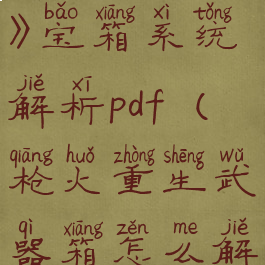 bǎo xiāng xì tǒng
》宝箱系统
jiě xī
解析pdf（
qiāng huǒ zhòng shēng wǔ
枪火重生武
qì xiāng zěn me jiě
器箱怎么解